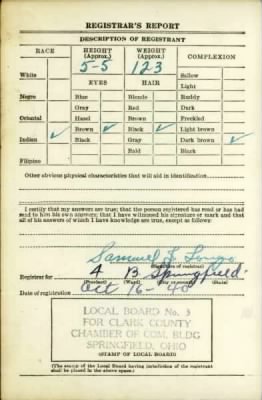 REGISTRAR'S REPORT
DESCRIPTION OF REGISTRANT
RACE HEIGHT (Approx.) WEIGHT (Approx.) COMPLEXION
5-5 123
White Sallow
EYES HAIR Light
Negro Blue Blonde Ruddy
Gray Red Dark
Oriental Hazel Brown Freckled
Brown ✓ Black ✓ Light brown
Indian ✓ Black Gray Dark brown ✓
Bald Black
Filipino
Other obvious physical characteristics that will aid in identification
I certify that my answers are true; that the person registered has read or has had
read to him his own answers; that I have witnessed his signature or mark and that
all of his answers of which I have knowledge are true, except as follows:
Samuel
(Signature of registrar)
Registrar for 4 B Springfield
(Precinct) (Ward) (City or county) (State)
Date of registration Oct 16-40
LOCAL BOARD No. 3
FOR CLARK COUNTY
CHAMBER OF COM. BLDG
SPRINGFIELD, OHIO
(STAMP OF LOCAL BOARD)
(The stamp of the Local Board having jurisdiction of the registrant
shall be placed in the above space.)